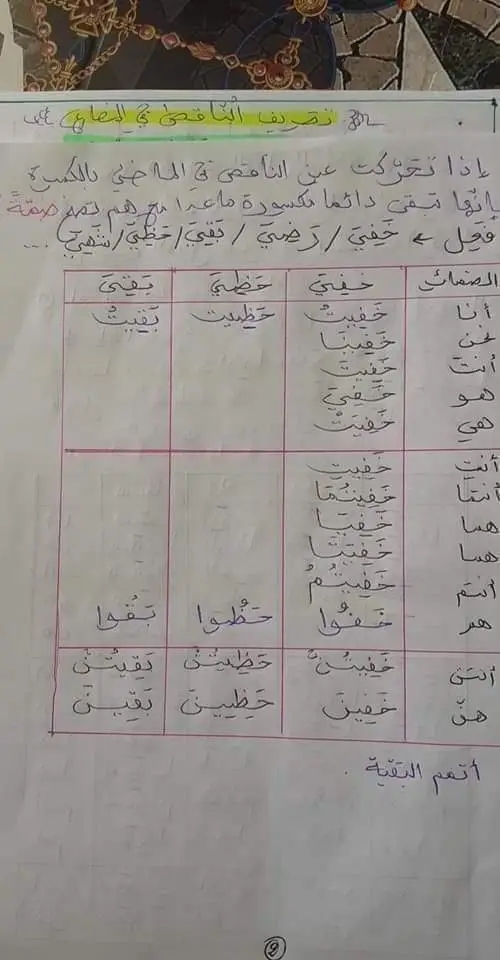 تصريف الناقص في الماضي
إذا تحرّكت عين الناقص في الماضي بالكسرة
فإنّها تبقى دائما مكسورة ماعدا مع هم تصير ضمّة
مثل ← خَفِيَ / رَضِيَ / بَقِيَ / حَظِيَ / شَهِيَ ...
الضمائر خفِيَ حَظِيَ بَقِيَ
أنا خَفِيتُ حَظِيت بَقِيتُ
نحن خَفِينَا
أنتَ خَفِيتَ
هو خَفِيَ
هي خَفِيَتْ
أنتِ خَفِيتِ
أنتما خَفِيتُمَا
هما خَفِيَا
هما خَفِيَتَا
أنتم خَفِيتُمْ
هم خَفُوا حَظُوا بَقُوا
أنتنّ خَفِيتُنَّ حَظِيتُنَّ بَقِيتُنَّ
هنّ خَفِينَ حَظِينَ بَقِينَ
أتمم البقيّة .
2